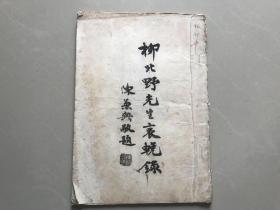 柳北野先生哀挽録
陳兼與敬題